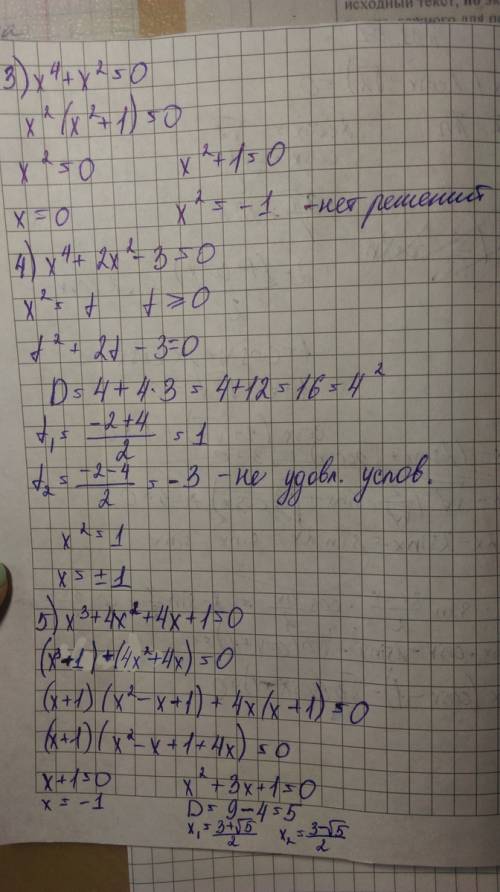 исходный текст, по
3) x⁴ + x² = 0
x² (x² + 1) = 0
x² = 0 x² + 1 = 0
x = 0 x² = -1 - нет решений
4) x⁴ + 2x² - 3 = 0
x² = t t ≥ 0
t² + 2t - 3 = 0
D = 4 + 4·3 = 4 + 12 = 16 = 4²
t₁ = (-2+4)/2 = 1
t₂ = (-2-4)/2 = -3 - не удовл. услов.
x² = 1
x = ±1
5) x³ + 4x² + 4x + 1 = 0
(x³+1) + (4x²+4x) = 0
(x+1) (x² - x + 1) + 4x(x+1) = 0
(x+1) (x² - x + 1 + 4x) = 0
x+1=0 x² + 3x + 1 = 0
x = -1 D = 9 - 4 = 5
x₁ = (3+√5)/2 x₂ = (3-√5)/2